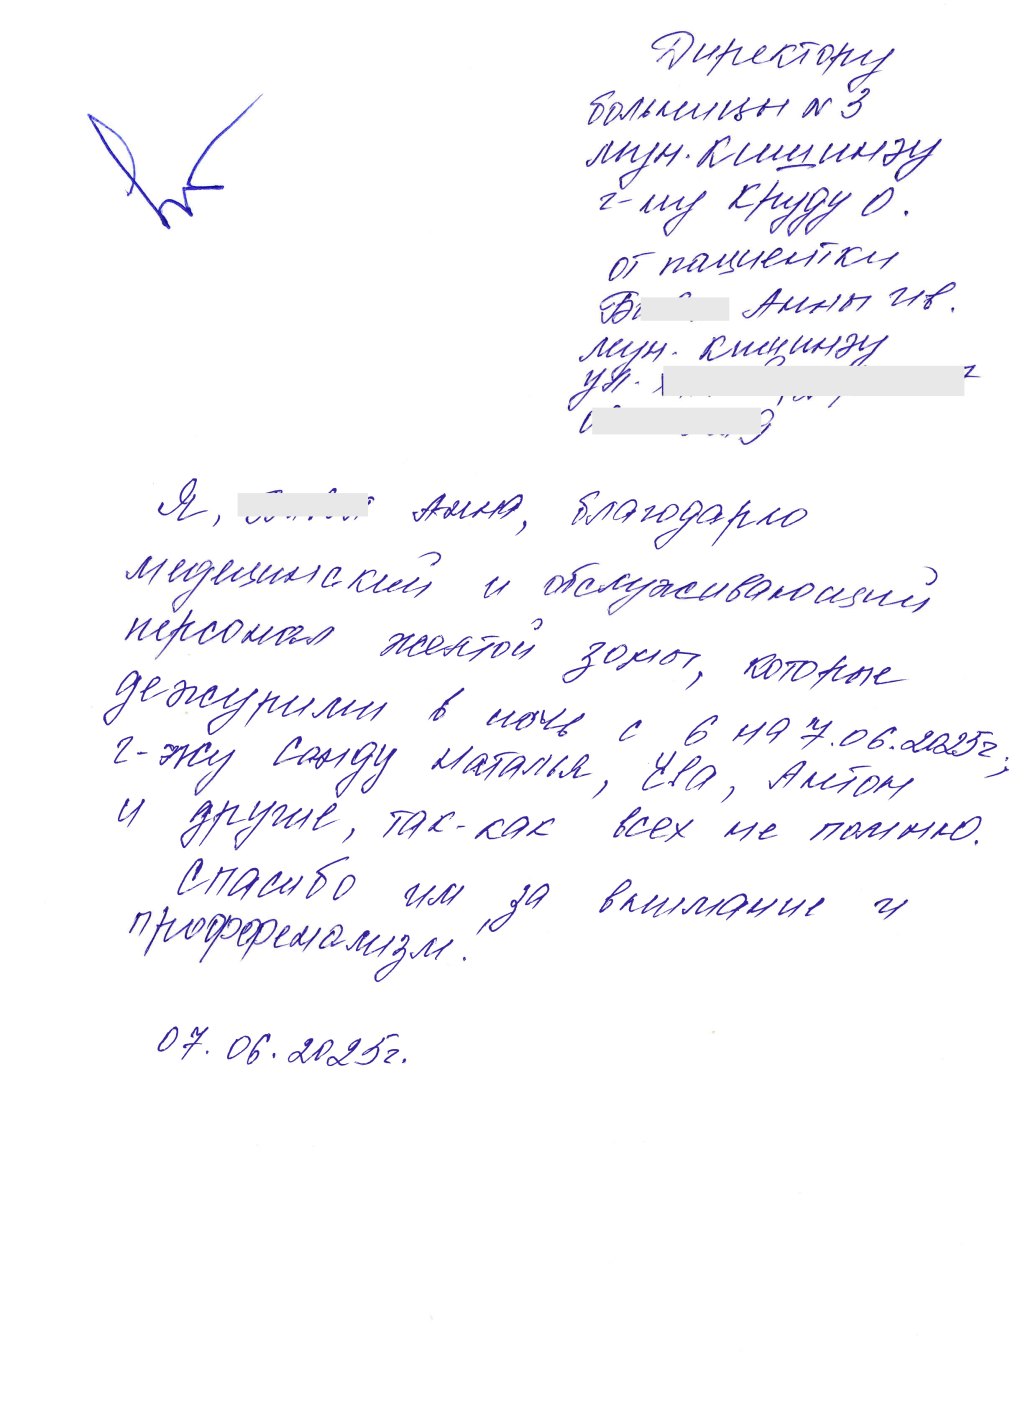 Директору
больницы N 3
мун. Кишинэу
г-ну Круду О.
от пациентки
Анны Ив.
мун. Кишинэу
ул.
Я, Анна, благодарю
медецинский и обслуживающий
персонал желтой зоны, которые
дежурили в ночь с 6 на 7.06.2025г.,
г-жу Санду Наталья, Ева, Антон
и другие, так-как всех не помню.
Спасибо им за внимание и
проффенализм.
07.06.2025г.